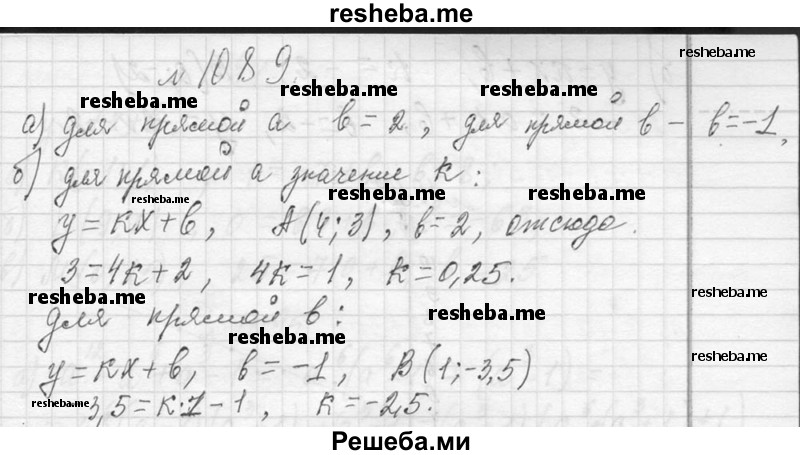 resheba.me
№ 1089.
resheba.me
resheba.me resheba.me resheba.me
а) для прямой а в = 2, для прямой в – в = -1,
б) для прямой а значение к:
resheba.me resheba.me resheba.me
у = кх + в, А(4; 3), в = 2, отсюда.
3 = 4к + 2, 4к = 1, к = 0,25.
resheba.me resheba.me
для прямой в:
resheba.me
resheba.me resheba.me
у = кх + в, в = -1, В(1; -3,5)
resheba.me 3,5 = к·1 - 1, к = -2,5.
resheba.me resheba.me
Решеба.ми